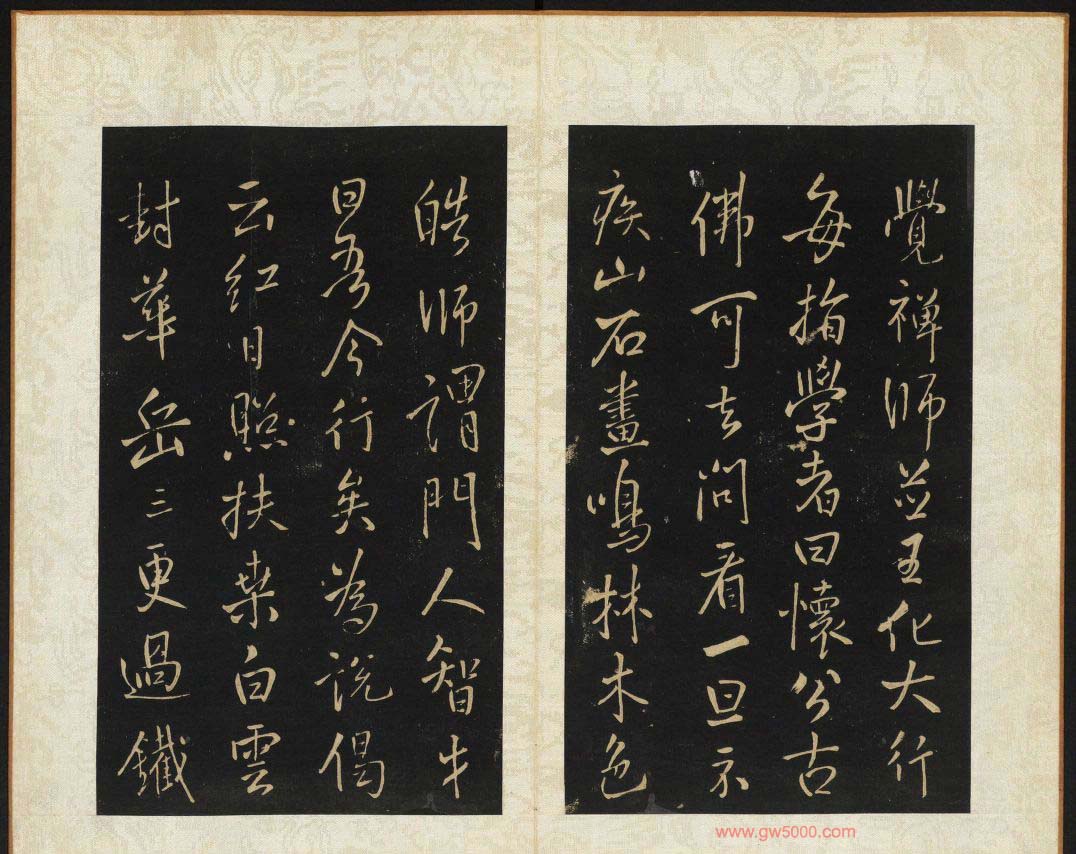 覺禪師並王化大行
每指學者曰懷公古
佛可去問看一旦示
疾山石畫鳴林木色
皓師謂門人智才
曰吾今行矣為說偈
云紅日照扶桒白雲
封華岳三更過鐵
www.gw5000.com